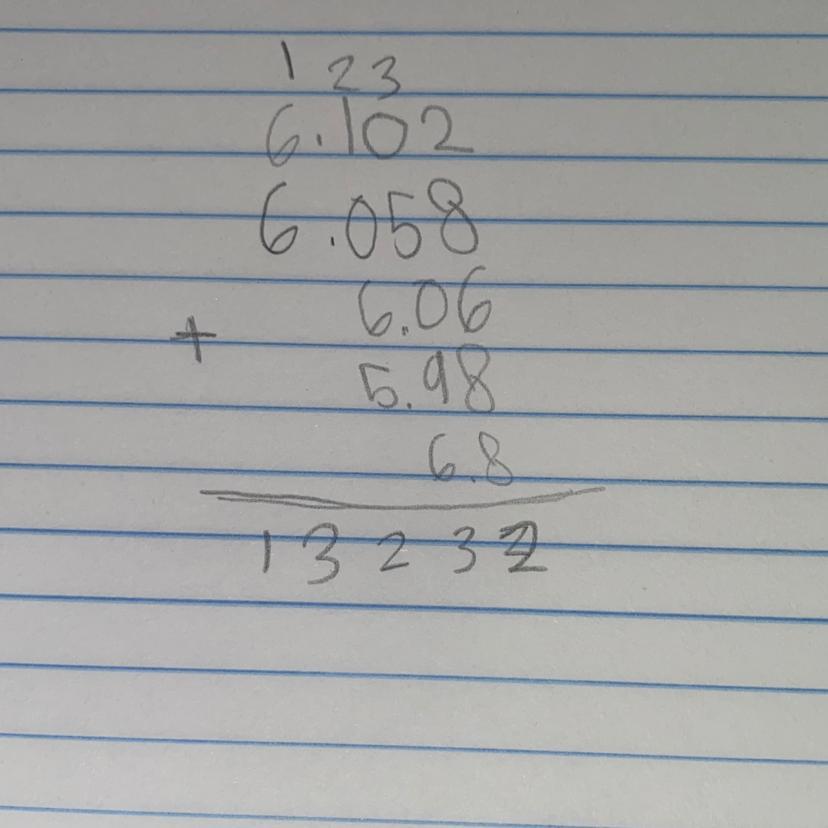 1 2 3
6.102
6.058
6.06
+
5.98
6.8
1 3 2 3 2